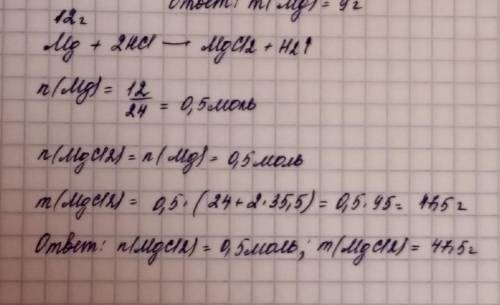 Ответ: m(Mg) = 9г
12г
Mg + 2HCl — MgCl2 + H2↑
n(Mg) = 12/24 = 0,5моль
n(MgCl2) = n(Mg) = 0,5моль
m(MgCl2) = 0,5·(24+2·35,5) = 0,5·95 = 47,5г
Ответ: n(MgCl2) = 0,5моль; m(MgCl2) = 47,5г